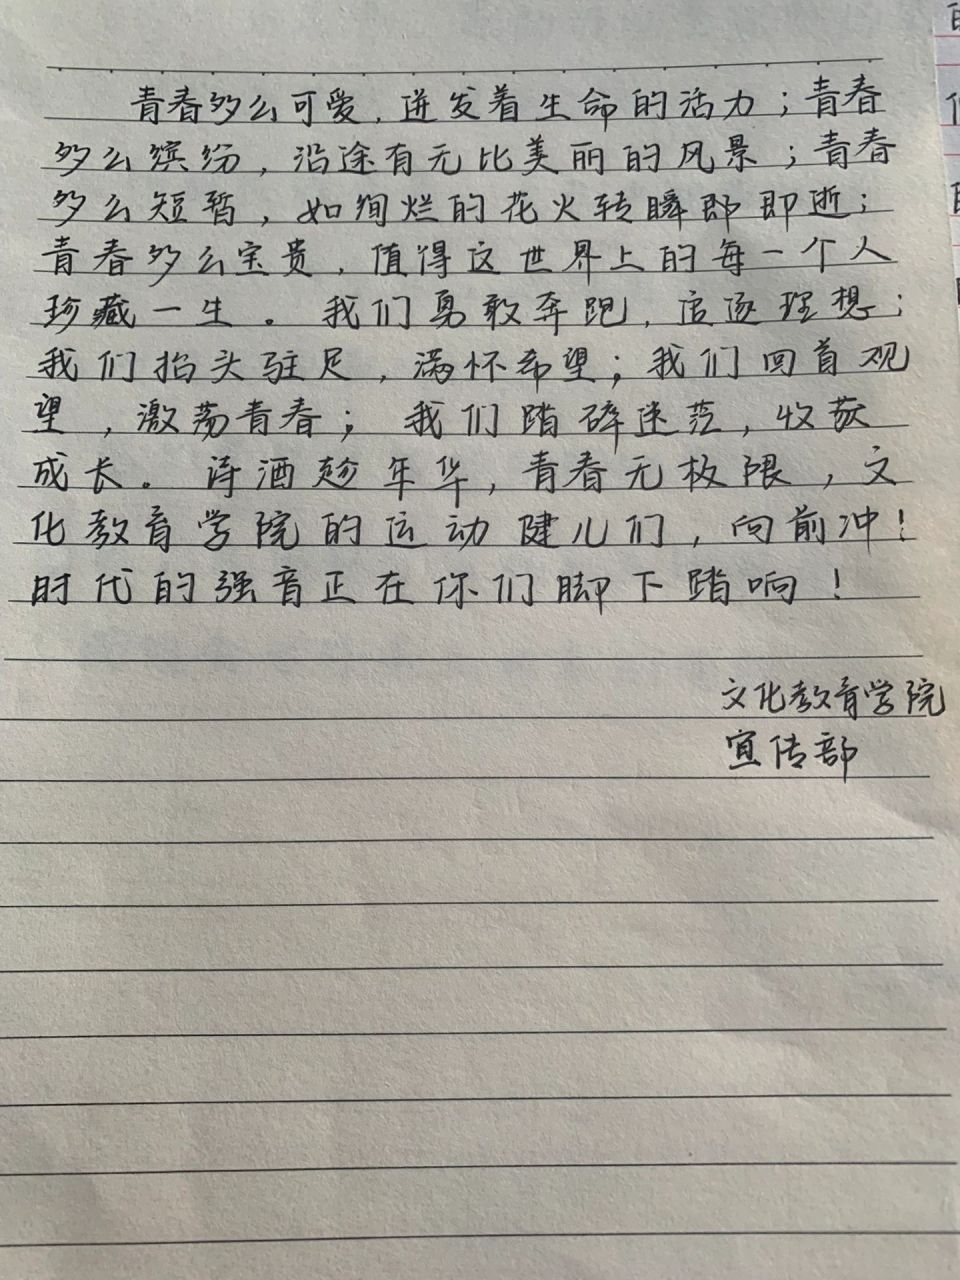 青春多么可爱,迸发着生命的活力;青春
多么缤纷,沿途有无比美丽的风景;青春
多么短暂,如绚烂的花火转瞬即即逝;
青春多么宝贵,值得这世界上的每一个人
珍藏一生。我们勇敢奔跑,追逐理想;
我们抬头驻足,满怀希望;我们回首观
望,激荡青春;我们踏碎迷茫,收获
成长。诗酒趁年华,青春无极限,文
化教育学院的运动健儿们,向前冲!
时代的强音正在你们脚下踏响!
文化教育学院
宣传部